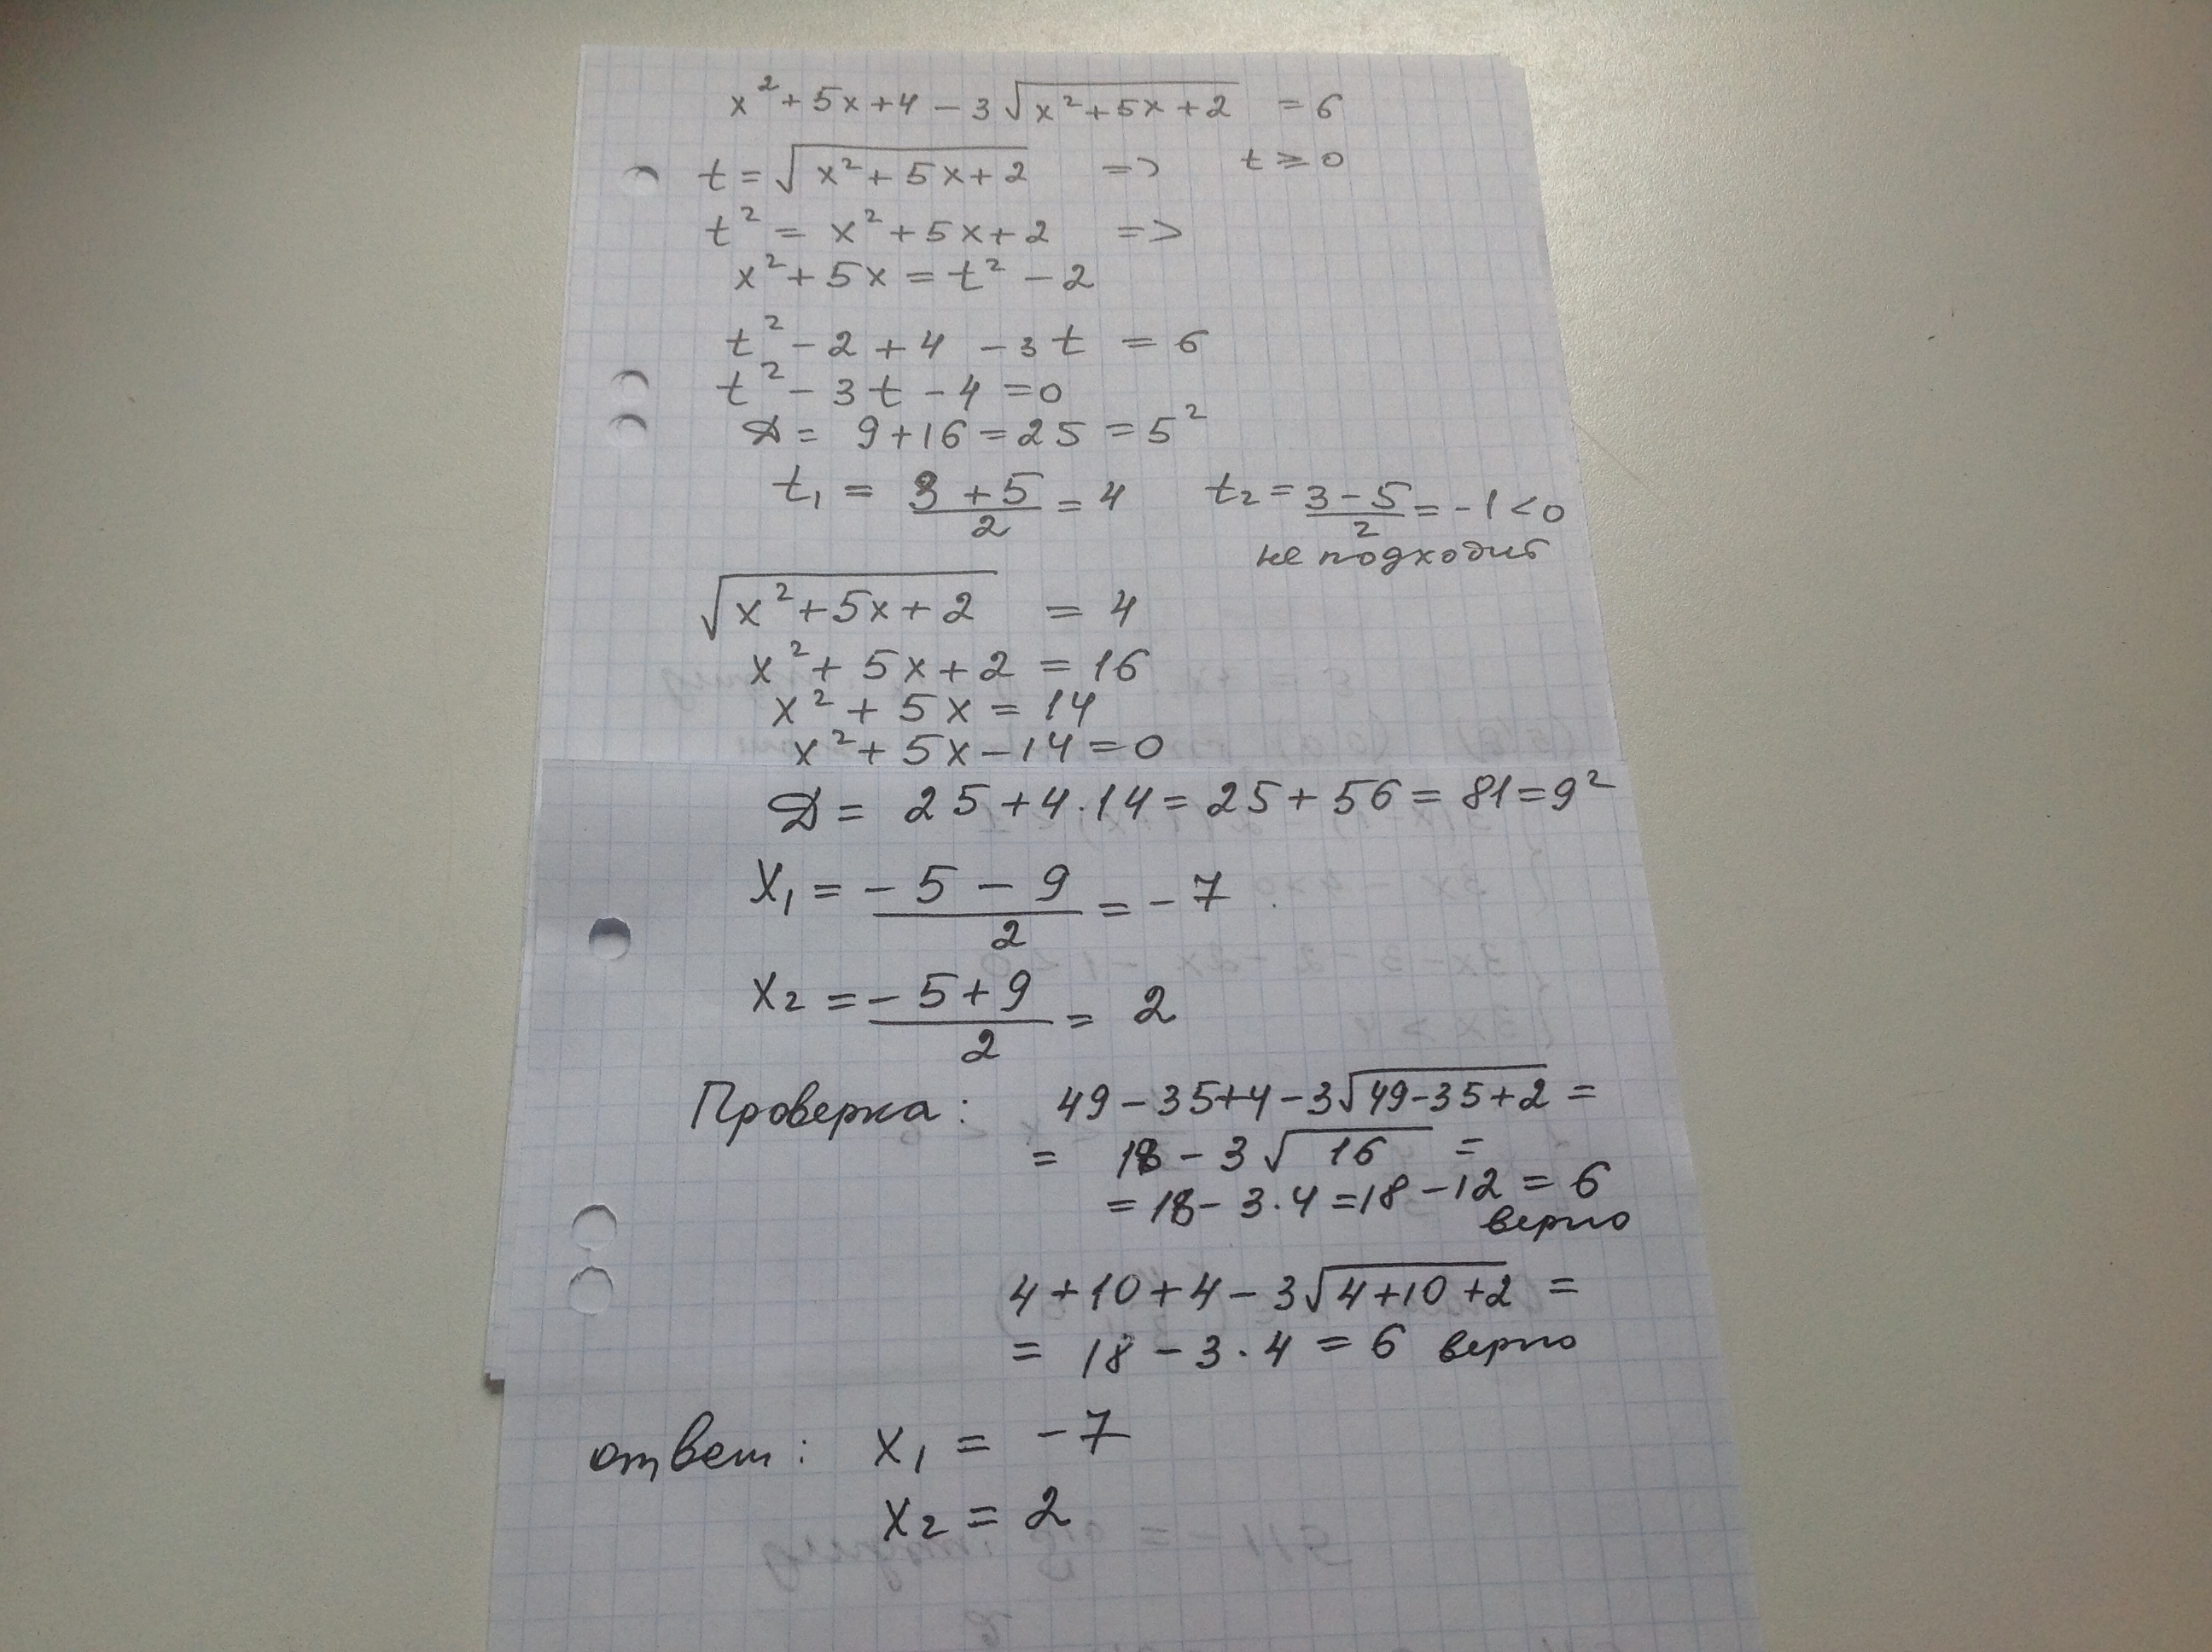 x² + 5x + 4 − 3√(x² + 5x + 2) = 6
t = √(x² + 5x + 2) => t ≥ 0
t² = x² + 5x + 2 =>
x² + 5x = t² − 2
t² − 2 + 4 − 3t = 6
t² − 3t − 4 = 0
D = 9 + 16 = 25 = 5²
t₁ = (3 + 5)/2 = 4 t₂ = (3 − 5)/2 = −1 < 0
не подходит
√(x² + 5x + 2) = 4
x² + 5x + 2 = 16
x² + 5x = 14
x² + 5x − 14 = 0
D = 25 + 4·14 = 25 + 56 = 81 = 9²
x₁ = (−5 − 9)/2 = −7
x₂ = (−5 + 9)/2 = 2
Проверка: 49 − 35 + 4 − 3√(49 − 35 + 2) =
= 18 − 3√16 =
= 18 − 3·4 = 18 − 12 = 6
верно
4 + 10 + 4 − 3√(4 + 10 + 2) =
= 18 − 3·4 = 6 верно
ответ: x₁ = −7
x₂ = 2